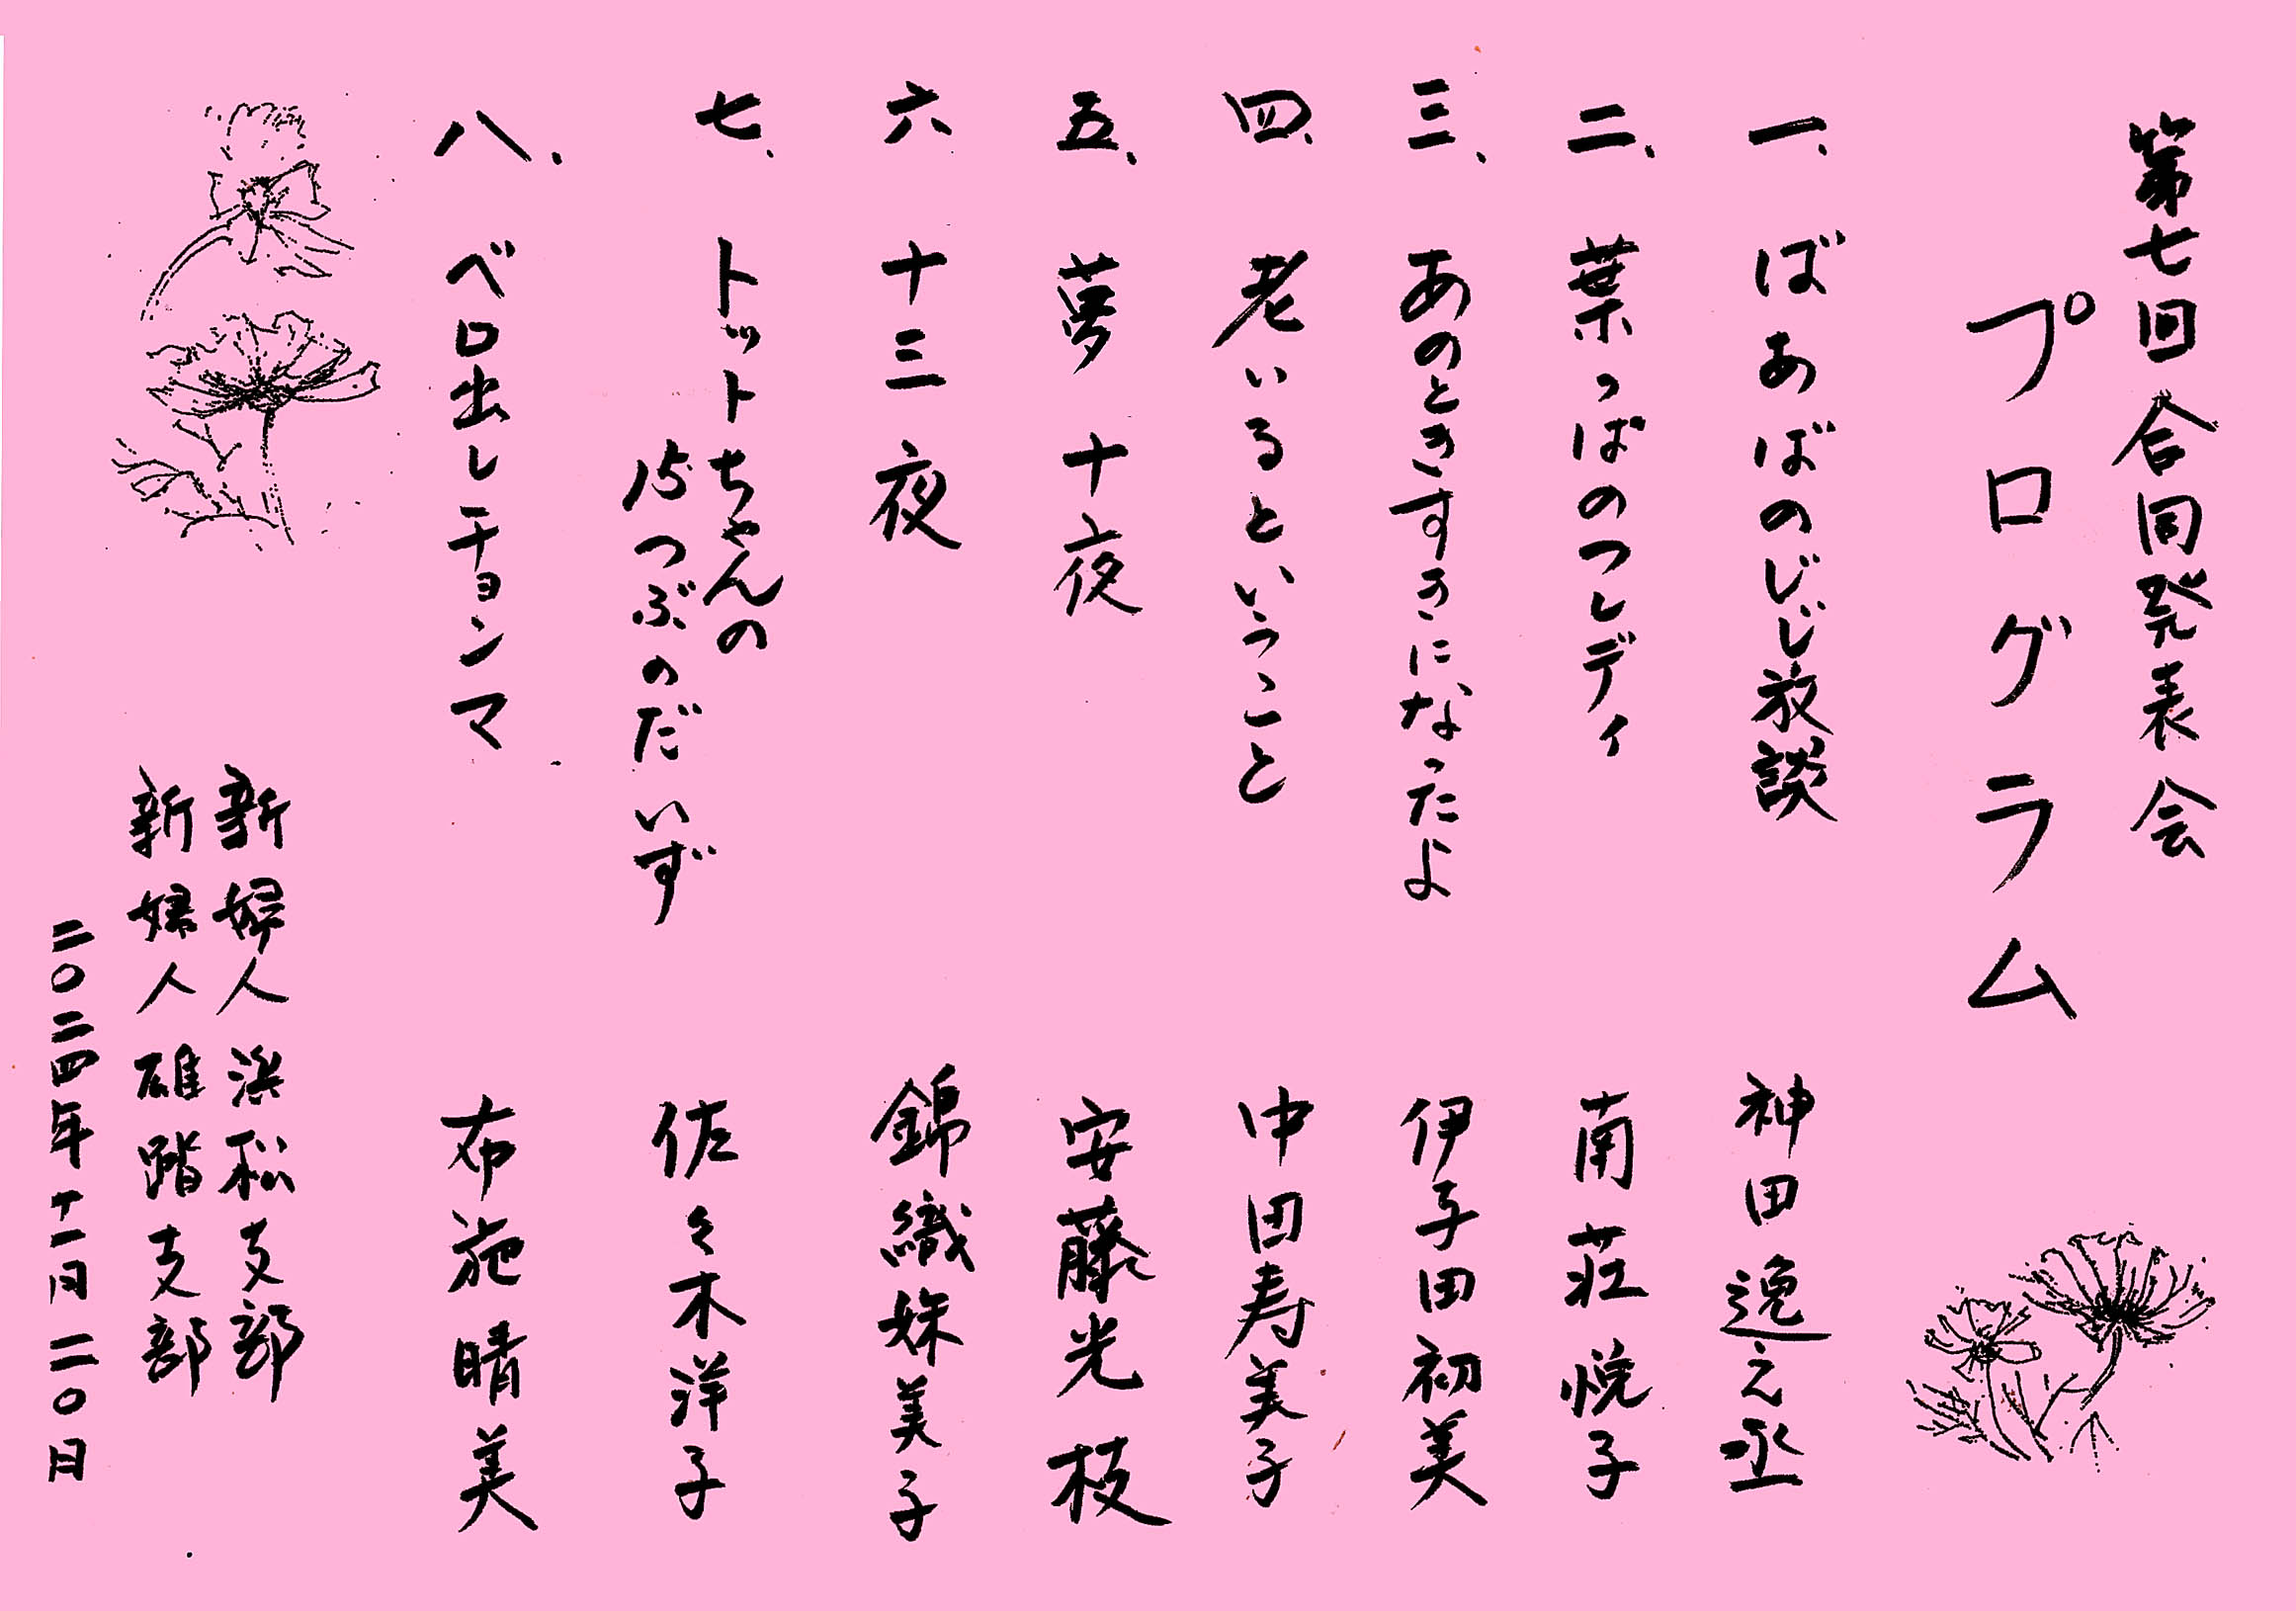 第七回合同発表会
プログラム
一、ばあばのじじ放談 神田逸之丞
二、葉っぱのフレディ 南荘悦子
三、あのときすきになったよ 伊子田初美
四、老いるということ 中田寿美子
五、夢十夜 安藤光枝
六、十三夜 錦織妹美子
七、トットちゃんの
15つぶのだいず 佐々木洋子
八、ベロ出しチョンマ 布施晴美
新婦人浜松支部
新婦人雄踏支部
二〇二四年十一月二〇日